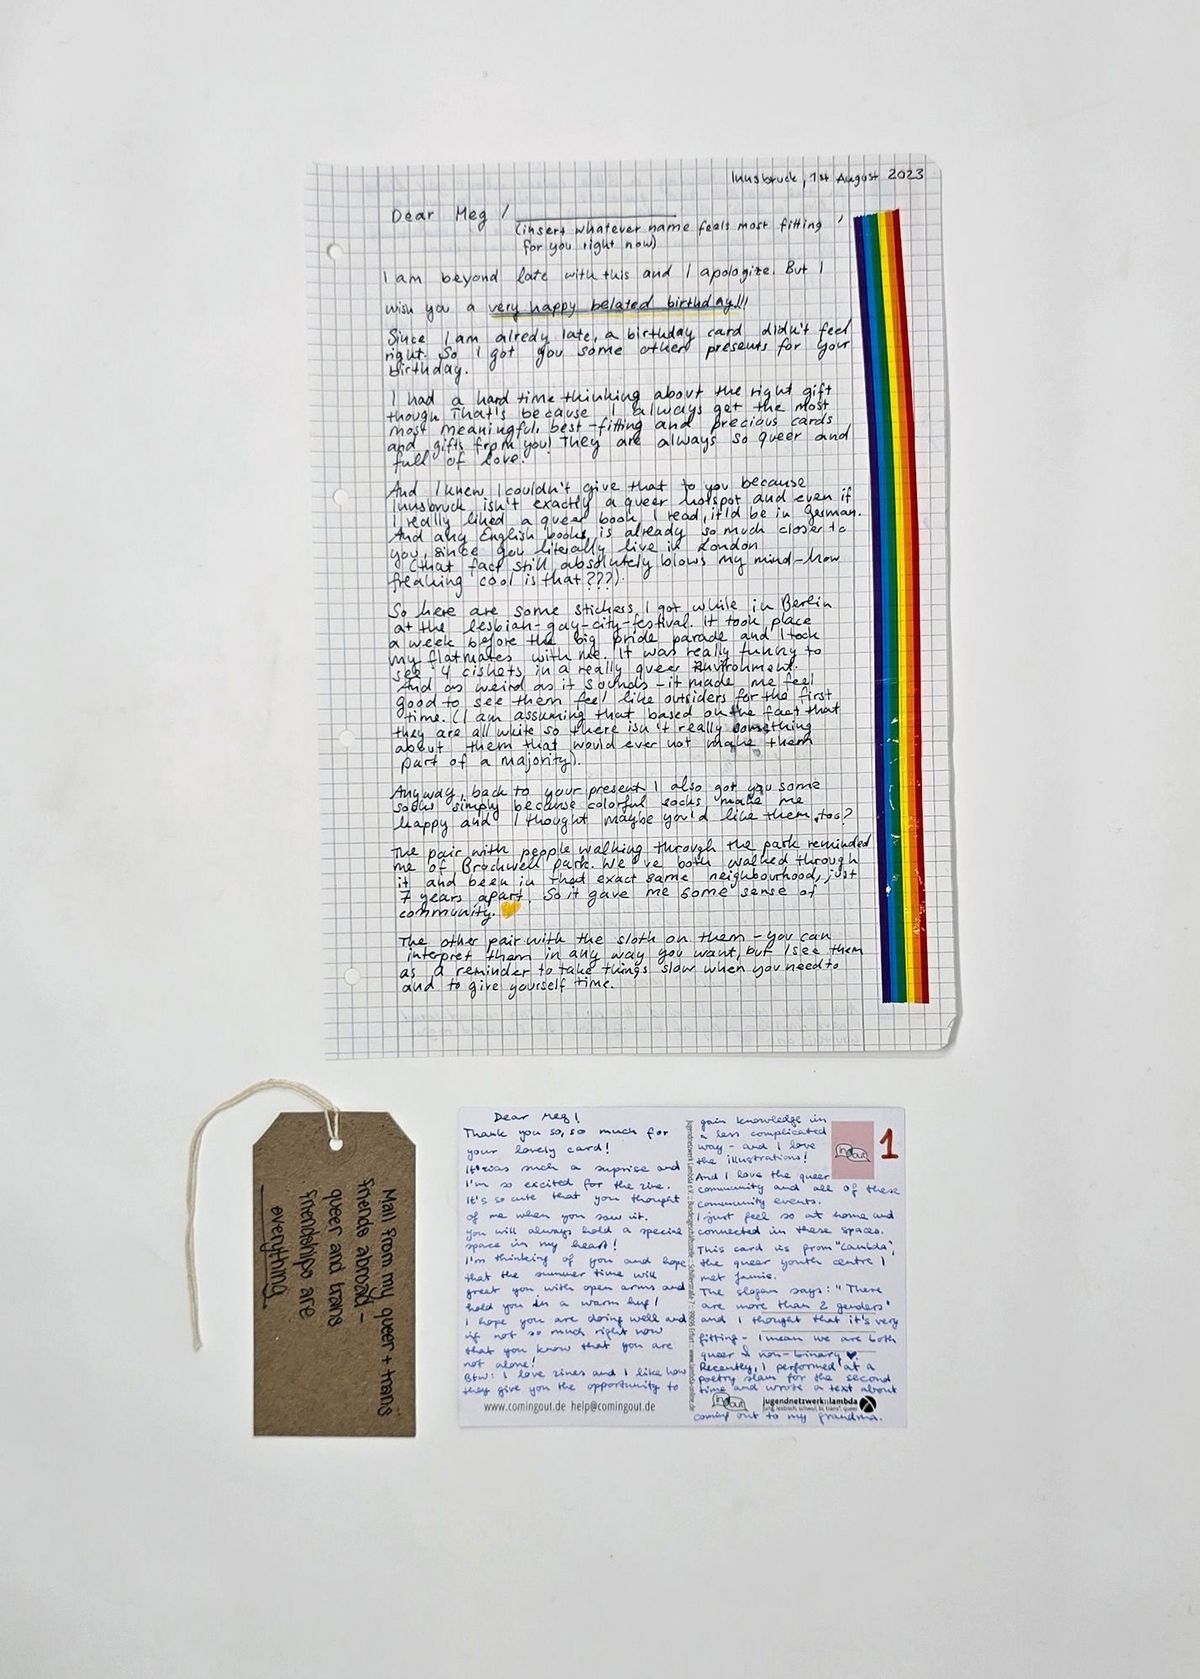 Innsbruck, 1st August 2023
Dear Meg /
(insert whatever name feels most fitting
for you right now)
I am beyond late with this and I apologize. But I
wish you a very happy belated birthday!!!
Since I am alredy late, a birthday card didn't feel
right. So I got you some other presents for your
birthday.
I had a hard time thinking about the right gift
though. That's because I always get the most
most meaningful, best-fitting and precious cards
and gifts from you! They are always so queer and
full of love!
And I knew I couldn't give that to you because
Innsbruck isn't exactly a queer hotspot and even if
I really liked a queer book I read, it'd be in German.
And any English books is already so much closer to
you, since you literally live in London
(that fact still absolutely blows my mind – how
freaking cool is that???).
So here are some stickers I got while in Berlin
at the lesbian-gay-city-festival. It took place
a week before the big pride parade and I took
my flatmates with me. It was really funny to
see 4 cishets in a really queer environment.
And as weird as it sounds – it made me feel
good to see them feel like outsiders for the first
time. (I am assuming that based on the fact that
they are all white so there isn't really something
about them that would ever not make them
part of a majority).
Anyway, back to your present I also got you some
socks simply because colorful socks make me
happy and I thought maybe you'd like them, too?
The pair with people walking through the park reminded
me of Brockwell park. We've both walked through
it and been in that exact same neighbourhood, just
7 years apart. So it gave me some sense of
community.
The other pair with the sloth on them – you can
interpret them in any way you want, but I see them
as a reminder to take things slow when you need to
and to give yourself time.
Mail from my queer + trans
friends abroad –
queer and trans
friendships are
everything
Dear Meg!
Thank you so, so much for
your lovely card!
It was such a suprise and
I'm so excited for the zine.
It's so cute that you thought
of me when you saw it.
You will always hold a special
space in my heart!
I'm thinking of you and hope
that the summer time will
greet you with open arms and
hold you in a warm hug!
I hope you are doing well and
if not so much right now
that you know that you are
not alone!
Btw: I love zines and I like how
they give you the opportunity to
www.comingout.de help@comingout.de
Jugendnetzwerk Lambda e.V. :: Bundesgeschäftsstelle :: Schillerstraße 7 :: 99096 Erfurt :: www.lambda-online.de
gain knowledge in
a less complicated
way – and I love
the illustrations!
in&out
1
And I love the queer
community and all of these
community events.
I just feel so at home and
connected in these spaces.
This card is from "Lambda",
the queer youth centre I
met Jamie.
The slogan says: "There
are more than 2 genders"
and I thought that it's very
fitting – I mean we are both
queer & non-binary
Recently, I performed at a
poetry slam for the second
time and wrote a text about
in&out
jugendnetzwerk::lambda
jung, lesbisch, schwul, bi, trans*, queer
coming out to my grandma.